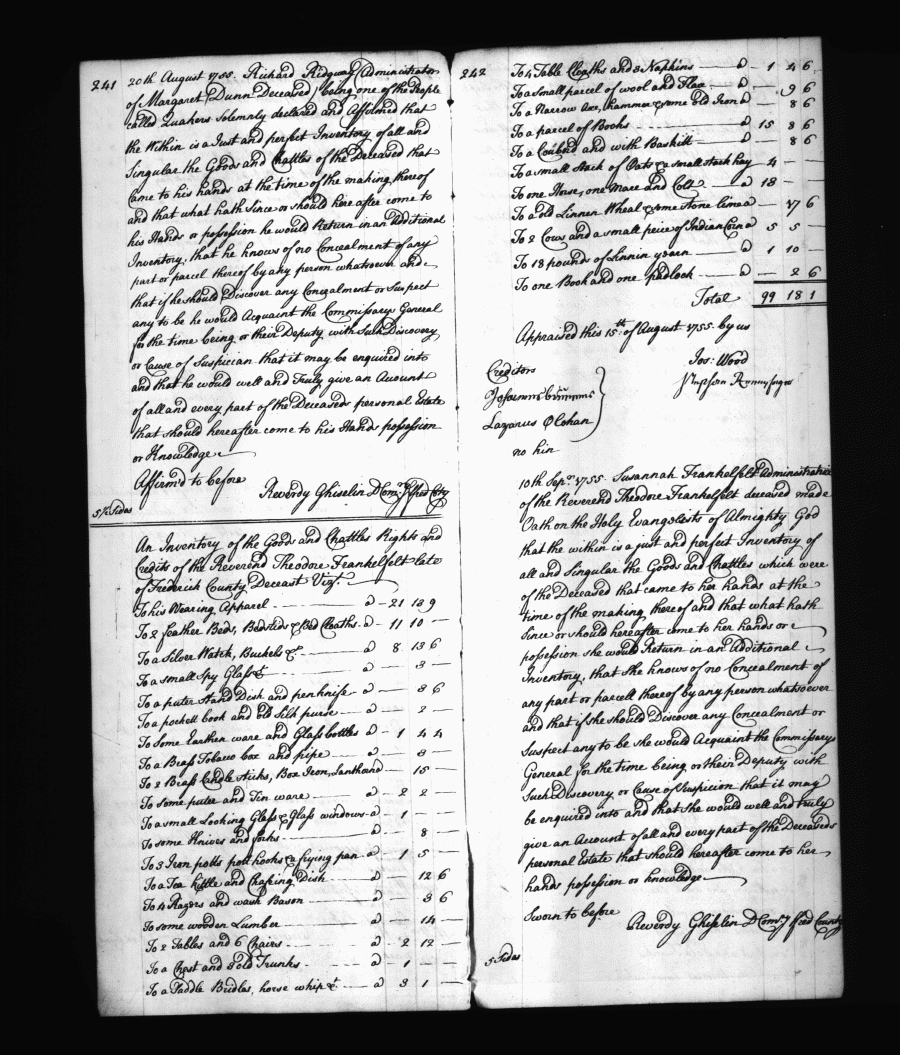 241
20th August 1755. Richard Ridgway Administrator
of Margaret Dunn Deceased being one of the People
called Quakers solemnly declared and Affirmed that
the Within is a Just and perfect Inventory of all and
Singular the Goods and Chattles of the Deceased that
Came to his hands at the time of the making thereof
and that what hath Since or should here after come to
his Hands or possession he would Return in an Additional
Inventory, that he knows of no Concealment of any
part or parcel thereof by any person whatsoever and
that if he should Discover any Concealment or Suspect
any to be he would Acquaint the Commissarys General
for the time being or their Deputy with Such Discovery
or Cause of Suspician that it may be enquired into
and that he would well and Truly give an Acount
of all and every part of the Deceaseds personal Estate
that should hereafter come to his Hands possession
or Knowledge
Affirm'd to before
Reverdy Ghiselin D Comry Fred Cty
5½ Sides
An Inventory of the Goods and Chattles Rights and
Credits of the Reverend Theodore Frankelfelt late
of Frederick County Deceast Vizt
To his Wearing Apparel a 21 18 9
To 2 feather Beds, Bedsteds & Bed Cloaths a 11 10 -
To a Silver Watch, Buckels &c a 8 13 6
To a small Spy Glass &c - 3 -
To a puter Stand Dish and penknife a - 3 6
To a pockett book and old Silk purse a - 2 -
To Some Earthen ware and Glass bottles a 1 4 4
To a Brass Tobacco box and pipe a - 3 -
To 2 Brass Candle Sticks, Box Iron, Lanthorn - 15 -
To some puter and Tin ware a 2 2 -
To a small Looking Glass & Glass windows a 1 -
To some Knives and forks a - 8 -
To 3 Iron potts pott hooks & a frying pan a 1 5 -
To a Tea kittle and Chafeing Dish a - 12 6
To 4 Razers and wash Bason a - 3 6
To some wooden Lumber a - 14 -
To 2 Tables and 6 Chairs a 2 12 -
To a Chest and 3 old Trunks a 1 - -
To a Saddle Bridles, horse whip &c a 3 1 -
242
To 4 Table Cloaths and 3 Napkins a 1 4 6
To a small parcel of wool and Flax a - 9 6
To a Narrow Axe, hammer & some old Iron a 8 6
To a parcel of Books a 15 8 6
To a Cubbord and with Baskitt a 8 6
To a small Stack of Oats & a small stack hay 4 - -
To one Horse, one Mare and Colt a 18 - -
To a old Linnen Wheal & some stone lime a - 17 6
To 2 Cows and a small peice of Indian Corn a 5 5 -
To 18 pounds of Linnin yearn a 1 10 -
To one Book and one padlock a - 2 6
Total 99 18 1
Appraised this 15th of August 1755. by us
Jos: Wood
Creditors
Lazarus
no kin
10th Sepr 1755. Susannah Frankelfelt Administratrix
of the Reverend Theodore Frankelfelt deceased made
Oath on the Holy Evangelists of Almighty God
that the within is a just and perfect Inventory of
all and Singular the Goods and Chattles which were
of the Deceased that came to her hands at the
time of the making thereof and that what hath
Since or should hereafter come to her hands or
possession she would Return in an Additional
Inventory, that she knows of no Concealment of
any part or parcell thereof by any person whatsoever
and that if she should Discover any Concealment or
Suspect any to be she would Acquaint the Commissary
General for the time being or their Deputy with
Such Discovery or Cause of Suspicion that it may
be enquired into and that she would well and truly
give an Account of all and every part of the Deceaseds
personal Estate that should hereafter come to her
hands possession or knowledge
Sworn to before
Reverdy Ghiselin D Comry Fred County
5 Sides